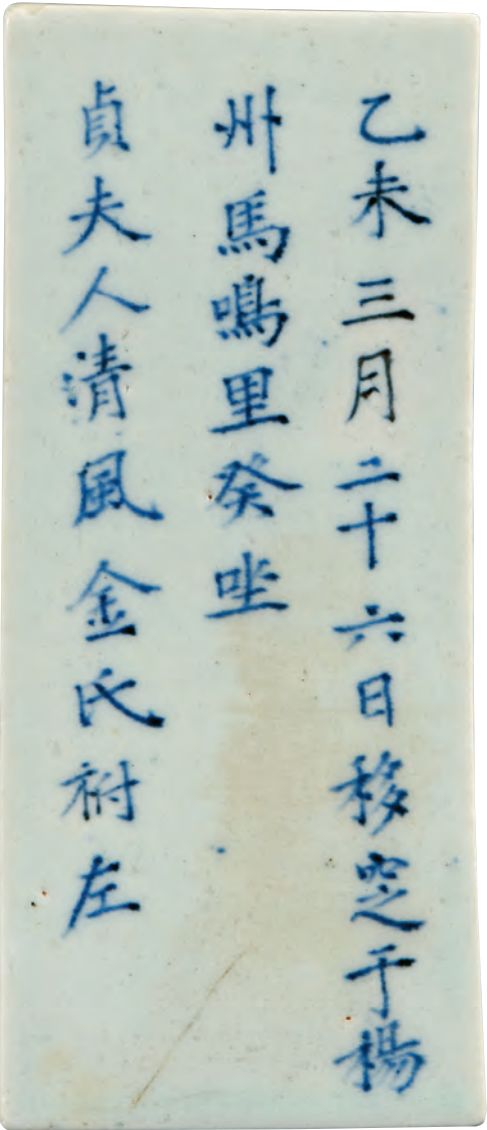 乙未三月二十六日移窆于楊
州馬鳴里癸坐
貞夫人清風金氏祔左